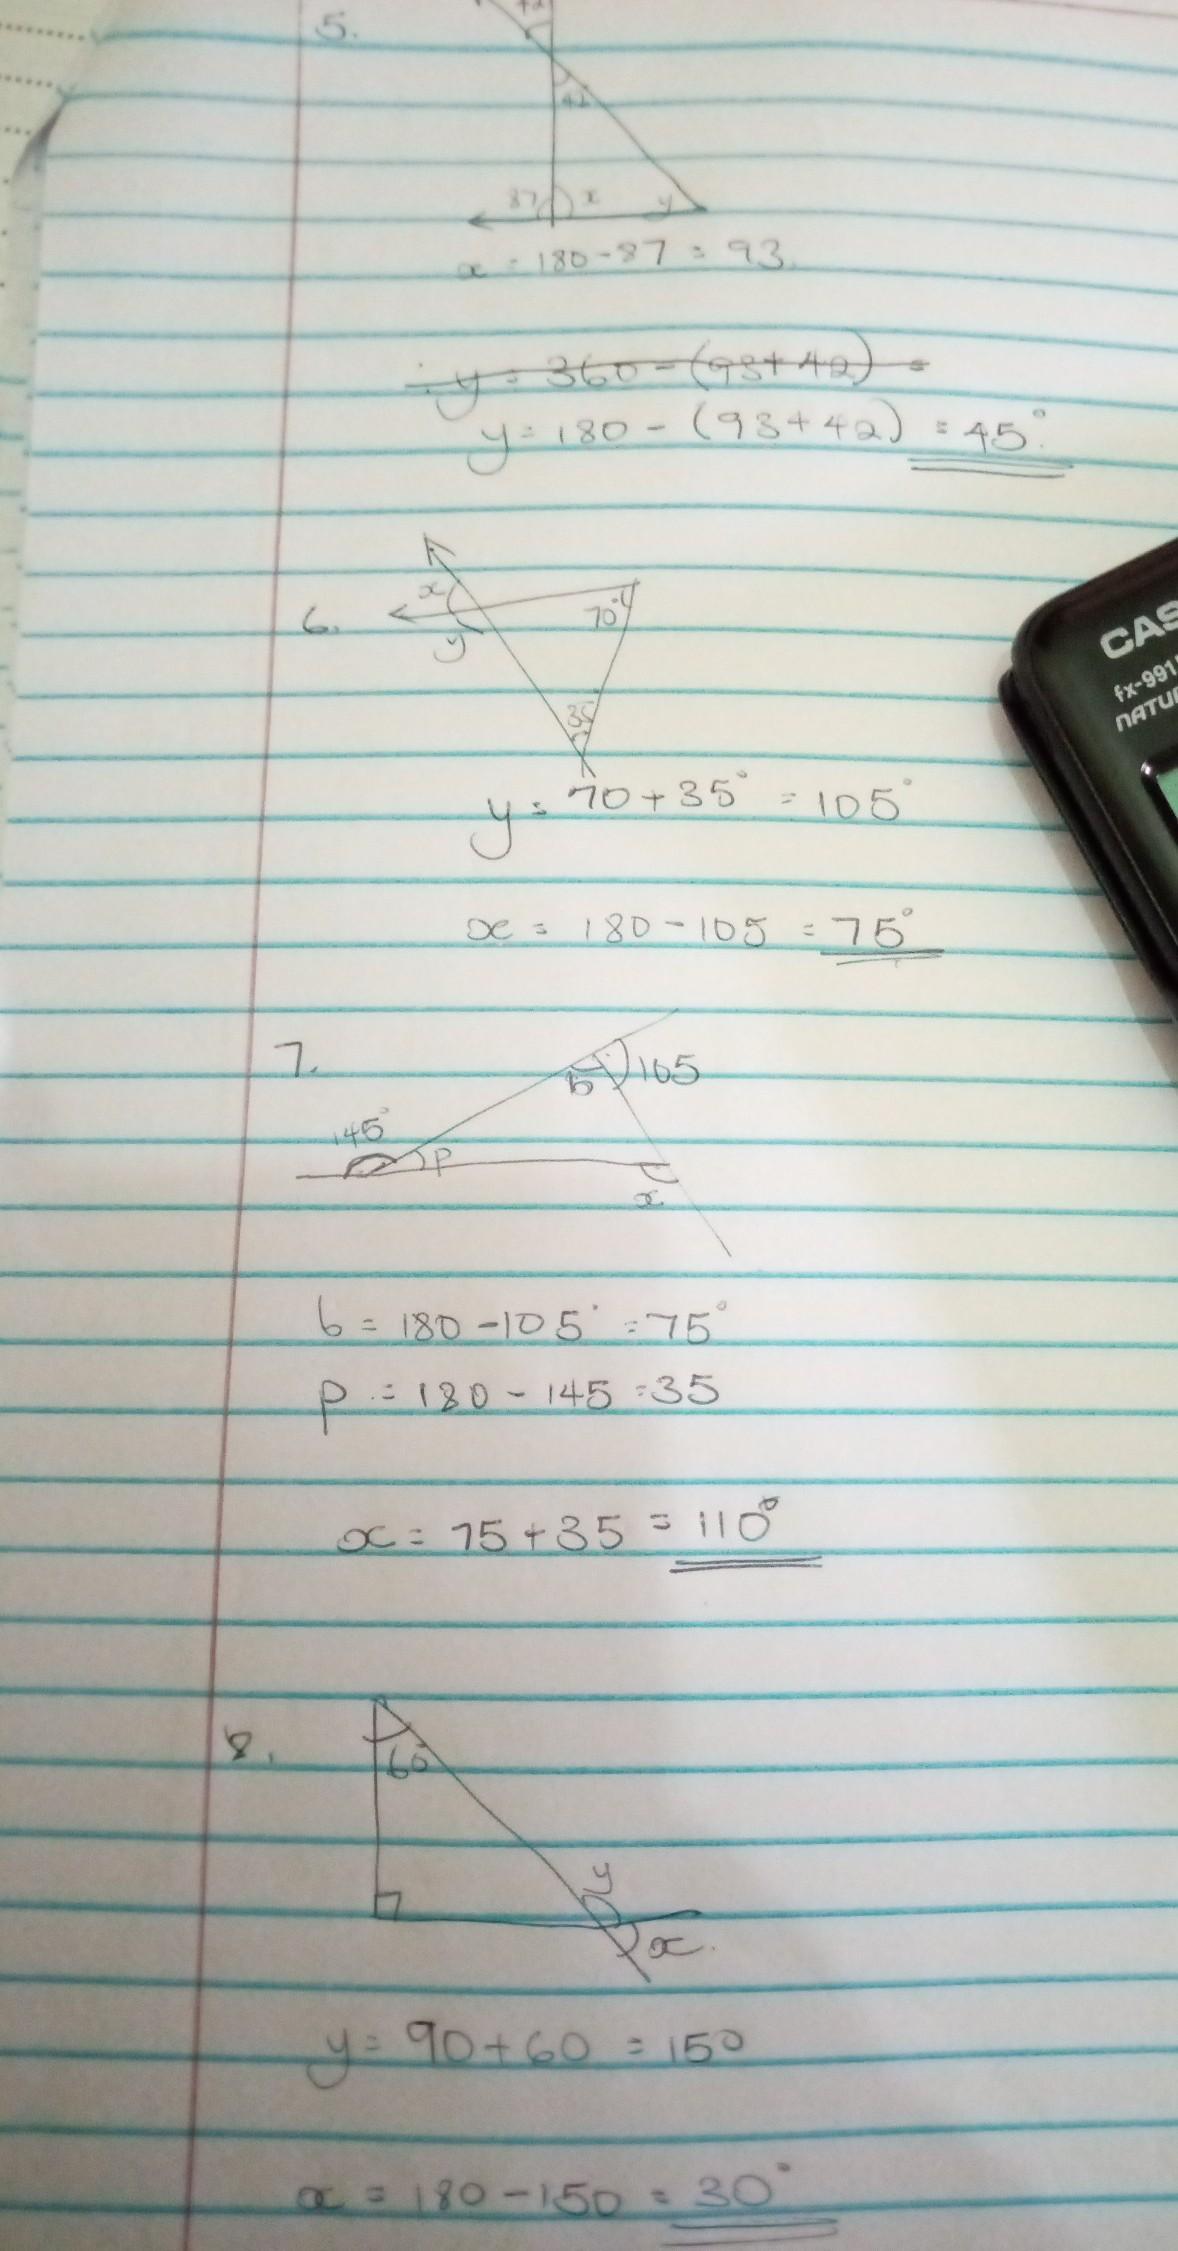 5.
42
42
87 x y
x = 180 - 87 = 93
y = 360 - (93 + 42) =
y = 180 - (93 + 42) = 45°
6.
x
70°
y
35
y = 70 + 35° = 105°
x = 180 - 105 = 75°
7.
b 105
145°
p
x
b = 180 - 105° = 75°
p = 180 - 145 = 35
x = 75 + 35 = 110°
8.
60
y
x
y = 90 + 60 = 150
x = 180 - 150 = 30°
CAS
fx-991
NATU